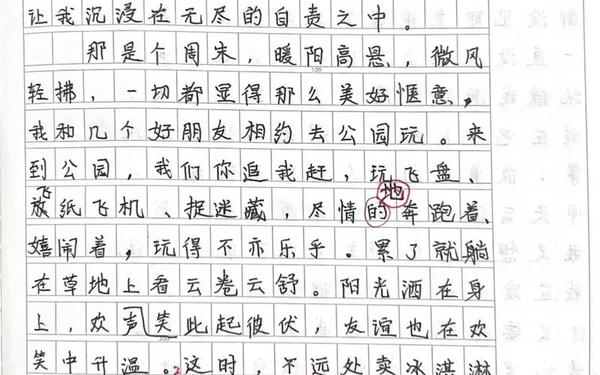 让我沉浸在无尽的自责之中。
那是个周末，暖阳高悬，微风
轻拂，一切都显得那么美好惬意，
我和几个好朋友相约去公园玩。来
到公园，我们你追我赶，玩飞盘、
飞 地
放纸飞机、捉迷藏，尽情的奔跑着、
嬉闹着，玩得不亦乐乎。累了就躺
在草地上看云卷云舒。阳光洒在身
上，欢声笑此起彼伏，友谊也在欢
笑中升温。这时，不远处卖冰淇淋